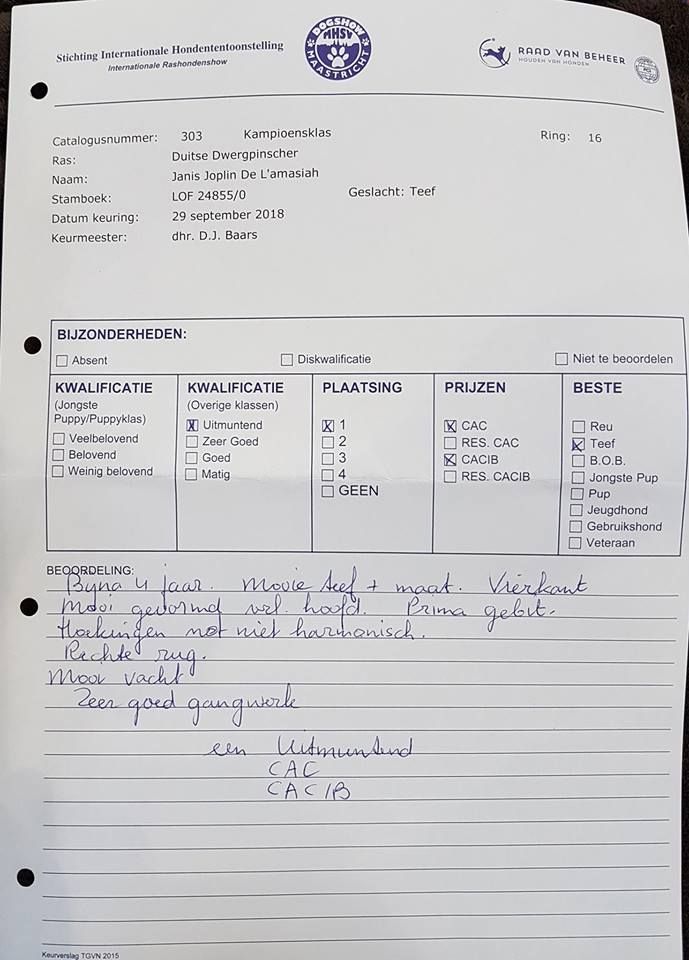 Stichting Internationale Hondententoonstelling
Internationale Rashondenshow
DOGSHOW
MHSV
MAASTRICHT
RAAD VAN BEHEER
HOUDEN VAN HONDEN
FCI
Catalogusnummer: 303 Kampioensklas Ring: 16
Ras: Duitse Dwergpinscher
Naam: Janis Joplin De L'amasiah
Stamboek: LOF 24855/0 Geslacht: Teef
Datum keuring: 29 september 2018
Keurmeester: dhr. D.J. Baars
BIJZONDERHEDEN:
Absent Diskwalificatie Niet te beoordelen
KWALIFICATIE
(Jongste
Puppy/Puppyklas)
Veelbelovend
Belovend
Weinig belovend
KWALIFICATIE
(Overige klassen)
X Uitmuntend
Zeer Goed
Goed
Matig
PLAATSING
X 1
2
3
4
GEEN
PRIJZEN
X CAC
RES. CAC
X CACIB
RES. CACIB
BESTE
Reu
X Teef
B.O.B.
Jongste Pup
Pup
Jeugdhond
Gebruikshond
Veteraan
BEOORDELING:
Byna 4 jaar. Mooie teef + maat. Vierkant
Mooi gevormd vrl. hoofd. Prima gebit.
Hoekingen niet harmonisch.
Rechte rug.
Mooi vacht
Zeer goed gangwerk
een Uitmuntend
CAC
CACIB
Keurverslag TGVN 2015